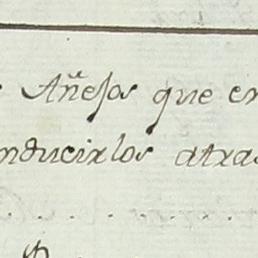 Añejos que en
nducirlos atras